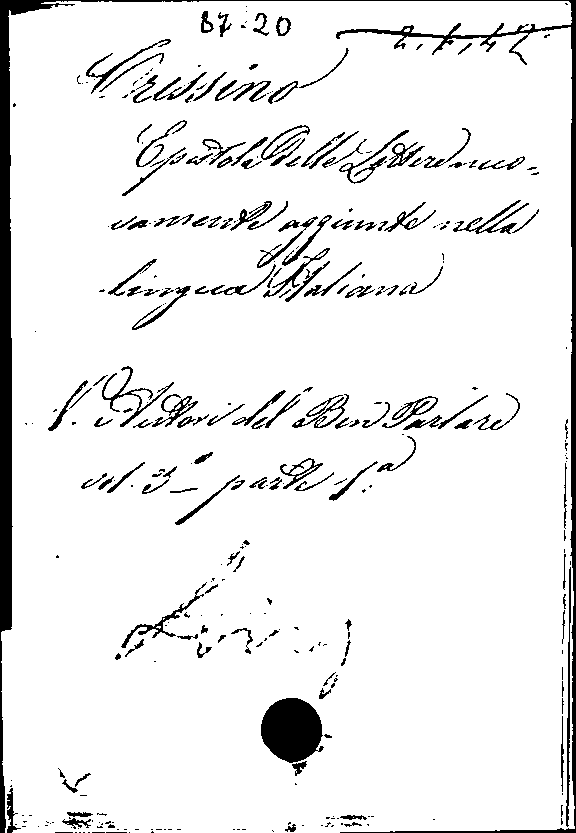 87-20
2.1.42
Trissino
Epistola delle Lettere nuo-
vamente aggiunte nella
lingua Italiana
V. Autori del Ben Parlare
vol. 3º parte 1.ª